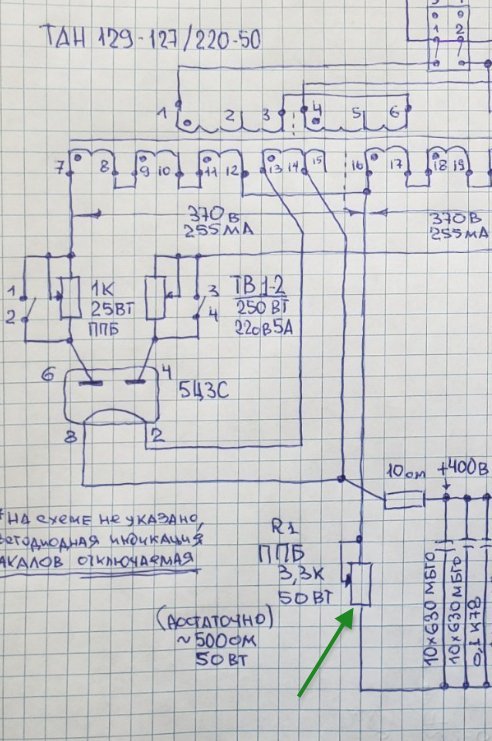 ТАН 129-127/220-50
3 4
1 2
1 2 3 4 5 6
7 8 9 10 11 12 13 14 15 16 17 18 19
370В
255МА
370В
255МА
1К
25ВТ
ППБ
ТВ1-2
250ВТ
220В5А
1
2
3
4
6 4
5Ц3С
8 2
10ом +400В
*НА СХЕМЕ НЕ УКАЗАНО,
ВЕТОДИОДНАЯ ИНДИКАЦИЯ
АКАЛОВ ОТКЛЮЧАЕМАЯ
R1
ППБ
3,3К
50ВТ
(ДОСТАТОЧНО)
~500ОМ
50ВТ
10х630 МБГО
10х630 МБГО
0,1 К78